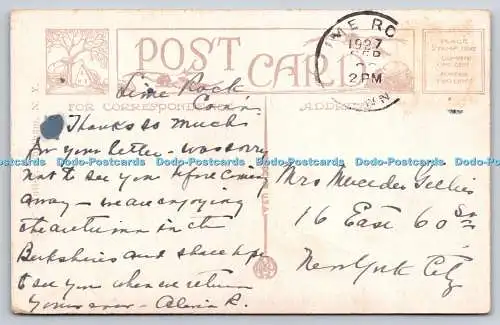 POST CARD
LIME RO
1927
2 PM
NN
PLACE
STAMP HERE
Lime Rock
Conn.
FOR CORRESPONDENCE
ADDRESS
Thanks so much
for your letter - was sorry
not to see you before coming
away - we are enjoying
the autumn in the
Berkshires and shall hope
to see you when we return
Yours ever -
Mrs Mercedes
16 East 60 St
New York City
N. Y.
U.S.A.
Dodo-Postcards Dodo-Postcards Dodo-Postcards Dodo-Postcards Dodo-Postcards Dodo-Postcards